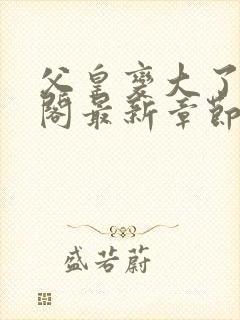 父皇变大了
阁最新章节
盛若蔚